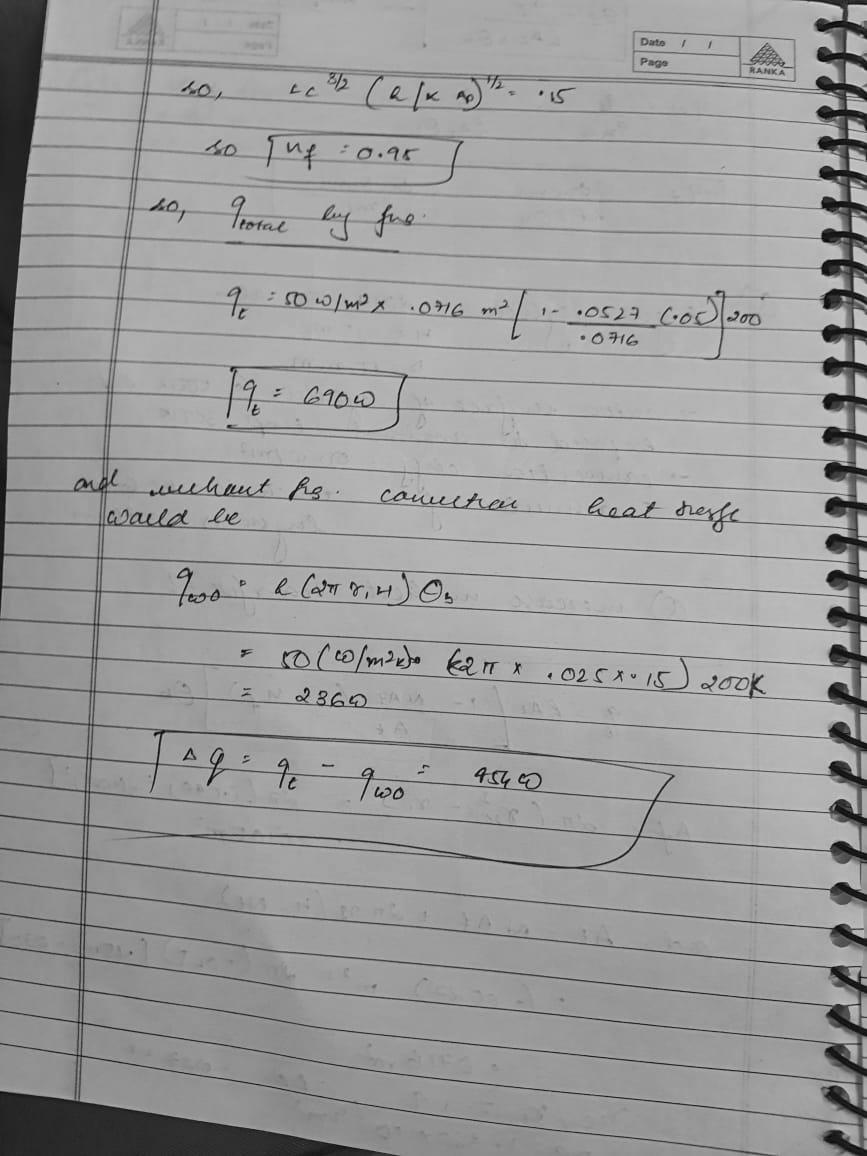 Date / /
Page
RANKA
so, Lc^3/2 (h/k Ap)^1/2 = .15
so nf = 0.95
so, q total by fns.
q_t = 50 w/m² x .0716 m² [ 1 - .0527/.0716 (.05) ] 200
q_t = 690 w
and without fns. convection heat
would be
q_wo = h (2π r, H) Θb
= 50 (w/m²k) (2π x .025 x .15) 200K
= 236 w
Δq = q_t - q_wo = 454 w